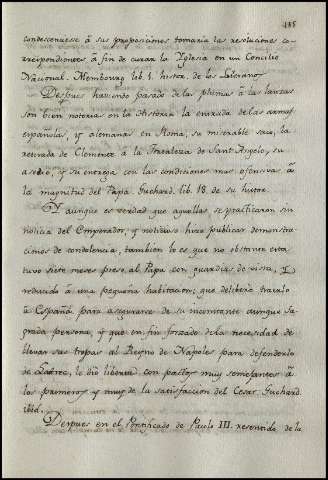 185
condescenciese á sus proposiciones tomaría las resoluciones co-
rrespondientes á fin de curar la Yglesia en un Concilio
Nacional. Membourg lib. 1. histor. de los Luteranos
Despues haviendo pasado de las plumas á las lanzas
son bien notorias en la Historia la entrada de las armas
españolas, y alemanas en Roma, su miserable saco, la
retirada de Clemente á la fortaleza de Sant Angelo, su
asedio, y su entrega con las condiciones mas ofensivas á
la magnitud del Papa Guchard. lib. 18. de su histor.
Y aunque es verdad que aquellas se practicaron sin
noticia del Emperador, y noticioso hizo publicar demonstra-
ciones de condolencia, tambien lo es que no obstante esta
tuvo siete meses preso al Papa con guardias de vista, y
reducido á una pequeña habitacion; que deliberó traerlo
á España para asegurarse de su incontante aunque sa-
grada persona, y que en fin forzado de la necesidad de
llevar sus tropas al Reyno de Napoles para defenderlo
de Lautrec, le dió libertad con pactos muy semejantes á
los primeros y muy de la satisfaccion del Cesar Guchard.
ibid.
Despues en el Pontificado de Paulo III. resentido de la